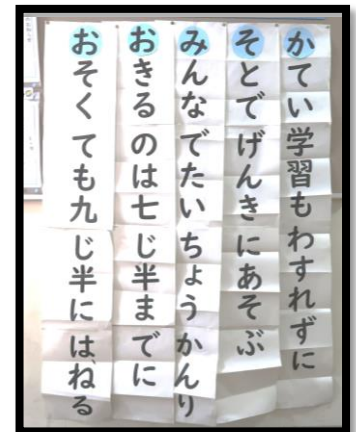 かてい学習もわすれずに
そとでげんきにあそぶ
みんなでたいちょうかんり
おきるのは七じ半までに
おそくても九じ半にはねる